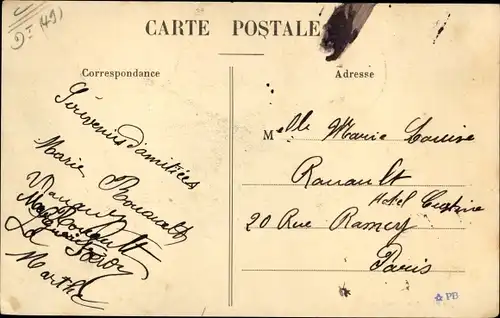 D I (49)
CARTE POSTALE
Correspondance
Adresse
Souvenirs d'amitiées
Marie Rouault
Marthe
Mlle Marie Louise
Rouault
Hotel Custine
20 Rue Ramey
Paris
PB